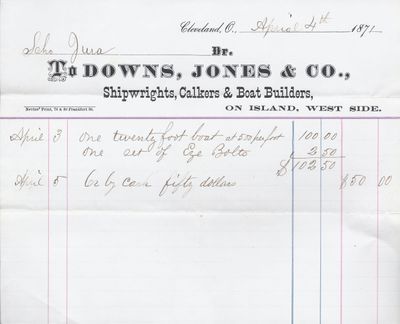 Cleveland, O., April 4th 1871
Scho Jura Dr.
To DOWNS, JONES & CO.,
Shipwrights, Calkers & Boat Builders,
Nevins' Print, 72 & 80 Frankfort St. ON ISLAND, WEST SIDE.
April 3 one twenty foot boat at 5.00 per foot 100 00
one set of Eye Bolts 2 50
$102 50
April 5 Cr by cash fifty dollars $50 00